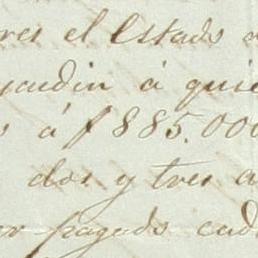 res el Estado
jardin á quie
s á $885.000
dos y tres a
er pagado cad